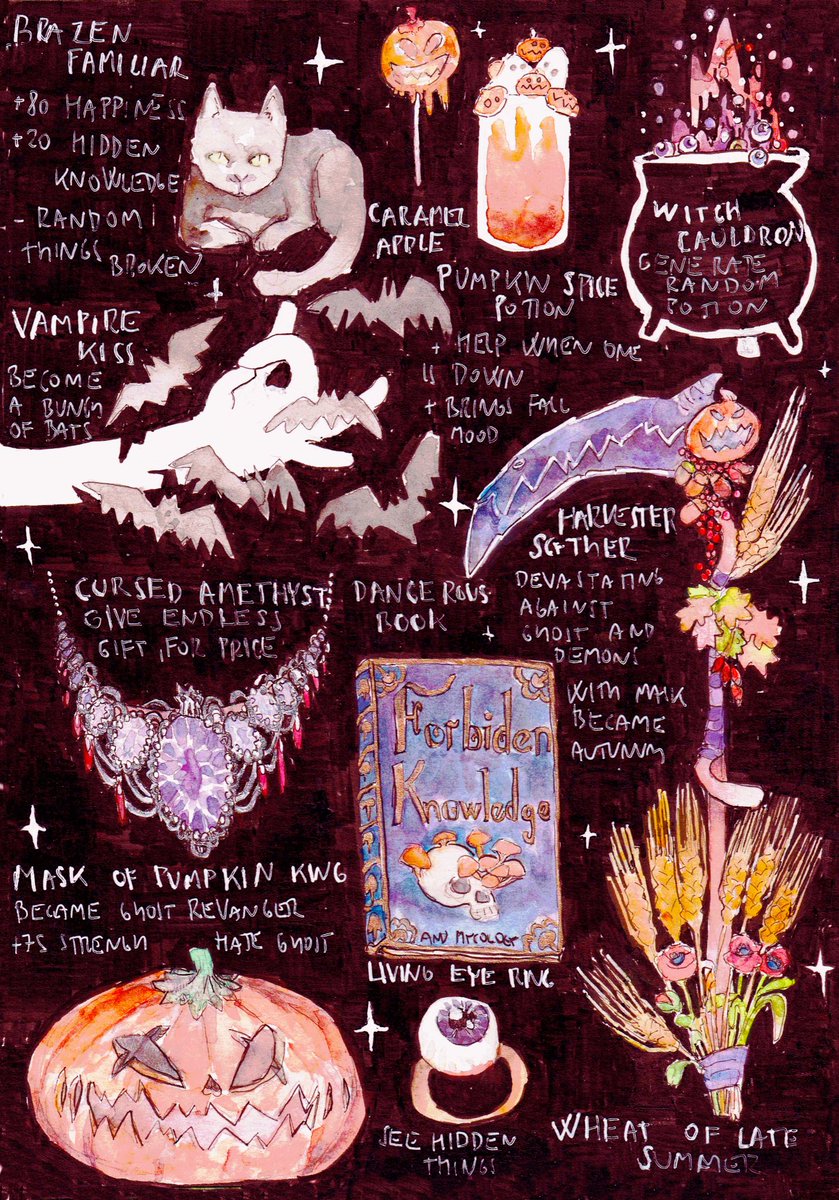 BRAZEN
FAMILIAR
+80 HAPPINESS
+20 HIDDEN
KNOWLEDGE
- RANDOM
THINGS
BROKEN
CARAMEL
APPLE
PUMPKIN SPICE
POTION
+ HELP WHEN ONE
IS DOWN
+ BRINGS FALL
MOOD
WITCH
CAULDRON
GENERATE
RANDOM
POTION
VAMPIRE
KISS
BECOME
A BUNCH
OF BATS
HARVESTER
SCYTHER
DEVASTATING
AGAINST
GHOST AND
DEMONS
WITH MASK
BECAME
AUTUMN
CURSED AMETHYST
GIVE ENDLESS
GIFT, FOR PRICE
DANGEROUS
BOOK
Forbiden
Knowledge
AND MYCOLOGY
MASK OF PUMPKIN KING
BECAME GHOST REVANGER
+75 STRENGH HATE GHOST
LIVING EYE RING
SEE HIDDEN
THINGS
WHEAT OF LATE
SUMMER